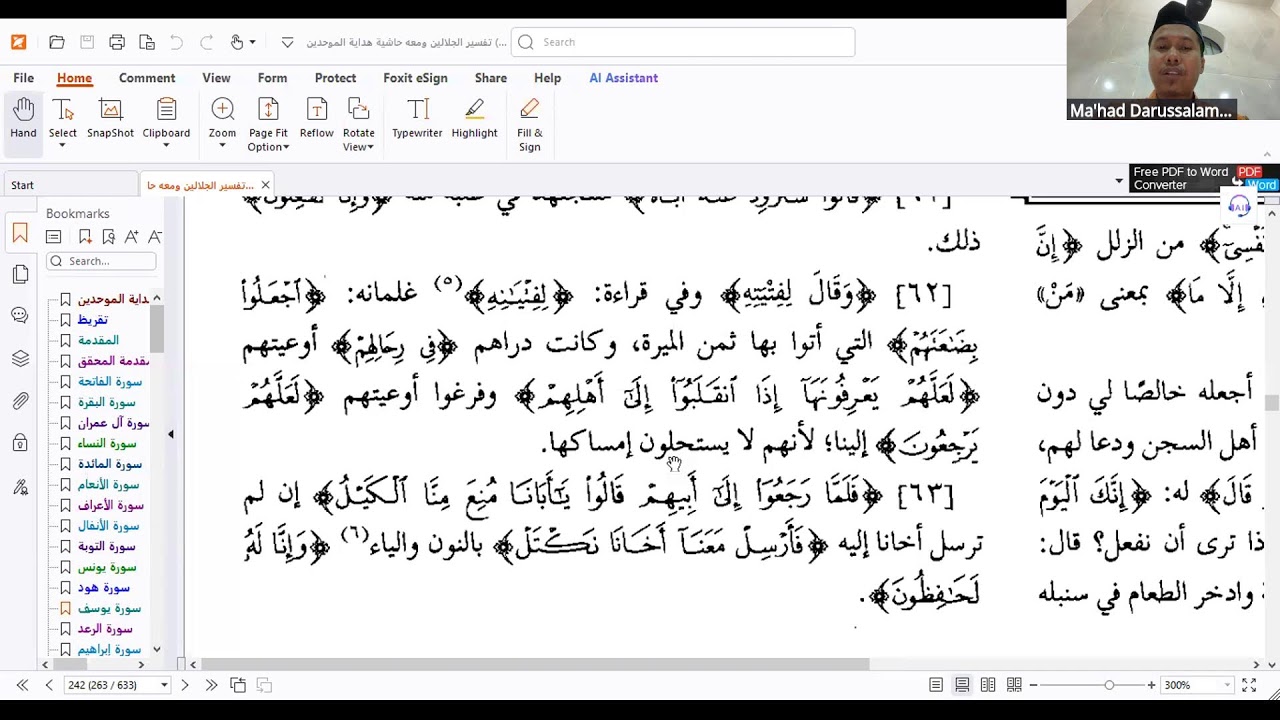 تفسير الجلالين ومعه حاشية هداية الموحدين (...
Search
Ma'had Darussalam...
File Home Comment View Form Protect Foxit eSign Share Help AI Assistant
Hand Select SnapShot Clipboard Zoom Page Fit Option Reflow Rotate View Typewriter Highlight Fill & Sign
Start
تفسير الجلالين ومعه حا...
Free PDF to Word Converter
PDF
Word
AI
Bookmarks
Search...
هداية الموحدين
تقريظ
المقدمة
مقدمة المحقق
سورة الفاتحة
سورة البقرة
سورة آل عمران
سورة النساء
سورة المائدة
سورة الأنعام
سورة الأعراف
سورة الأنفال
سورة التوبة
سورة يونس
سورة هود
سورة يوسف
سورة الرعد
سورة إبراهيم
ذلك.
[٦٢] ﴿وَقَالَ لِفِتْيَتِهِ﴾ وفي قراءة: ﴿لِفِتْيَـٰنِهِ﴾(٥) غلمانه: ﴿ٱجْعَلُوا۟
بِضَـٰعَتَهُمْ﴾ التي أتوا بها ثمن الميرة، وكانت دراهم ﴿فِى رِحَالِهِمْ﴾ أوعيتهم
﴿لَعَلَّهُمْ يَعْرِفُونَهَآ إِذَا ٱنقَلَبُوٓا۟ إِلَىٰٓ أَهْلِهِمْ﴾ وفرغوا أوعيتهم ﴿لَعَلَّهُمْ
يَرْجِعُونَ﴾ إلينا؛ لأنهم لا يستحلون إمساكها.
[٦٣] ﴿فَلَمَّا رَجَعُوٓا۟ إِلَىٰٓ أَبِيهِمْ قَالُوا۟ يَـٰٓأَبَانَا مُنِعَ مِنَّا ٱلْكَيْلُ﴾ إن لم
ترسل أخانا إليه ﴿فَأَرْسِلْ مَعَنَآ أَخَانَا نَكْتَلْ﴾ بالنون والياء(٦) ﴿وَإِنَّا لَهُۥ
لَحَـٰفِظُونَ﴾.
نَفْسِىٓ﴾ من الزلل ﴿إِنَّ
إِلَّا مَا﴾ بمعنى «مَنْ»
أجعله خالصًا لي دون
أهل السجن ودعا لهم،
قَالَ﴾ له: ﴿إِنَّكَ ٱلْيَوْمَ
ذا ترى أن نفعل؟ قال:
وادخر الطعام في سنبله
242 (263 / 633)
300%